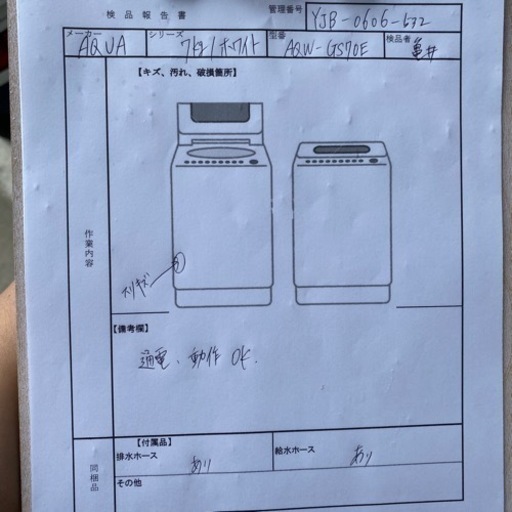 検品報告書
管理番号 YJB-0606-532
メーカー AQUA シリーズ 7kg/ホワイト 型番 AQW-GS70E 検品者 亀井
【キズ、汚れ、破損箇所】
作業内容
スリキズ
【備考欄】
通電、動作OK.
【付属品】
同梱品
排水ホース あり 給水ホース あり
その他